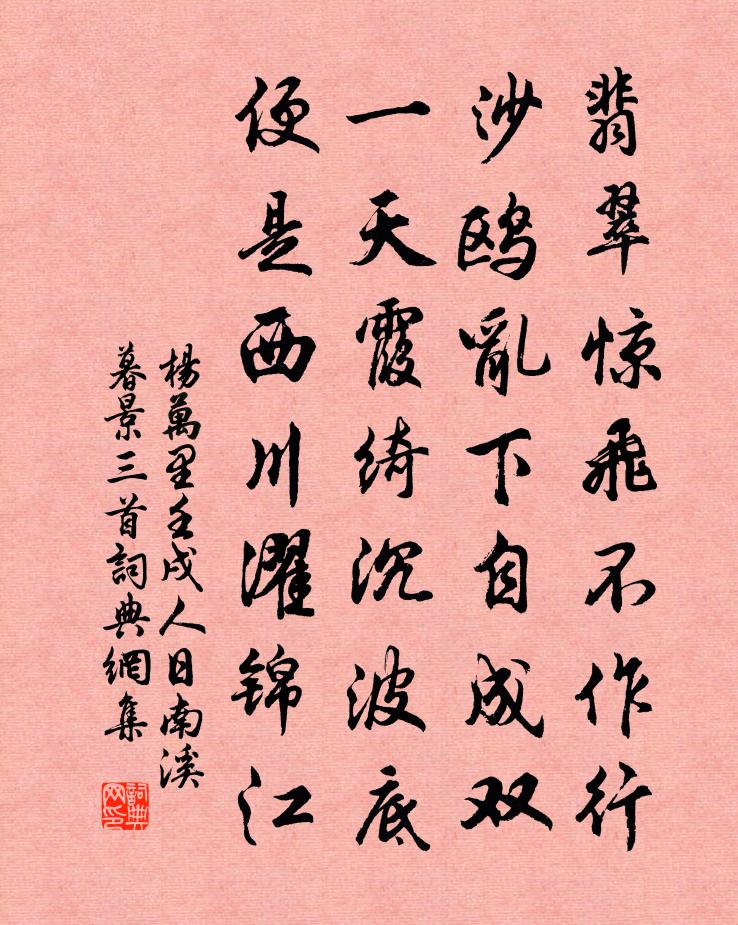 翡翠惊飛不作行
沙鸥亂下自成双
一天霞绮沉波底
便是西川濯锦江
楊萬里壬戌人日南溪
暮景三首詞典網集
詞典网印